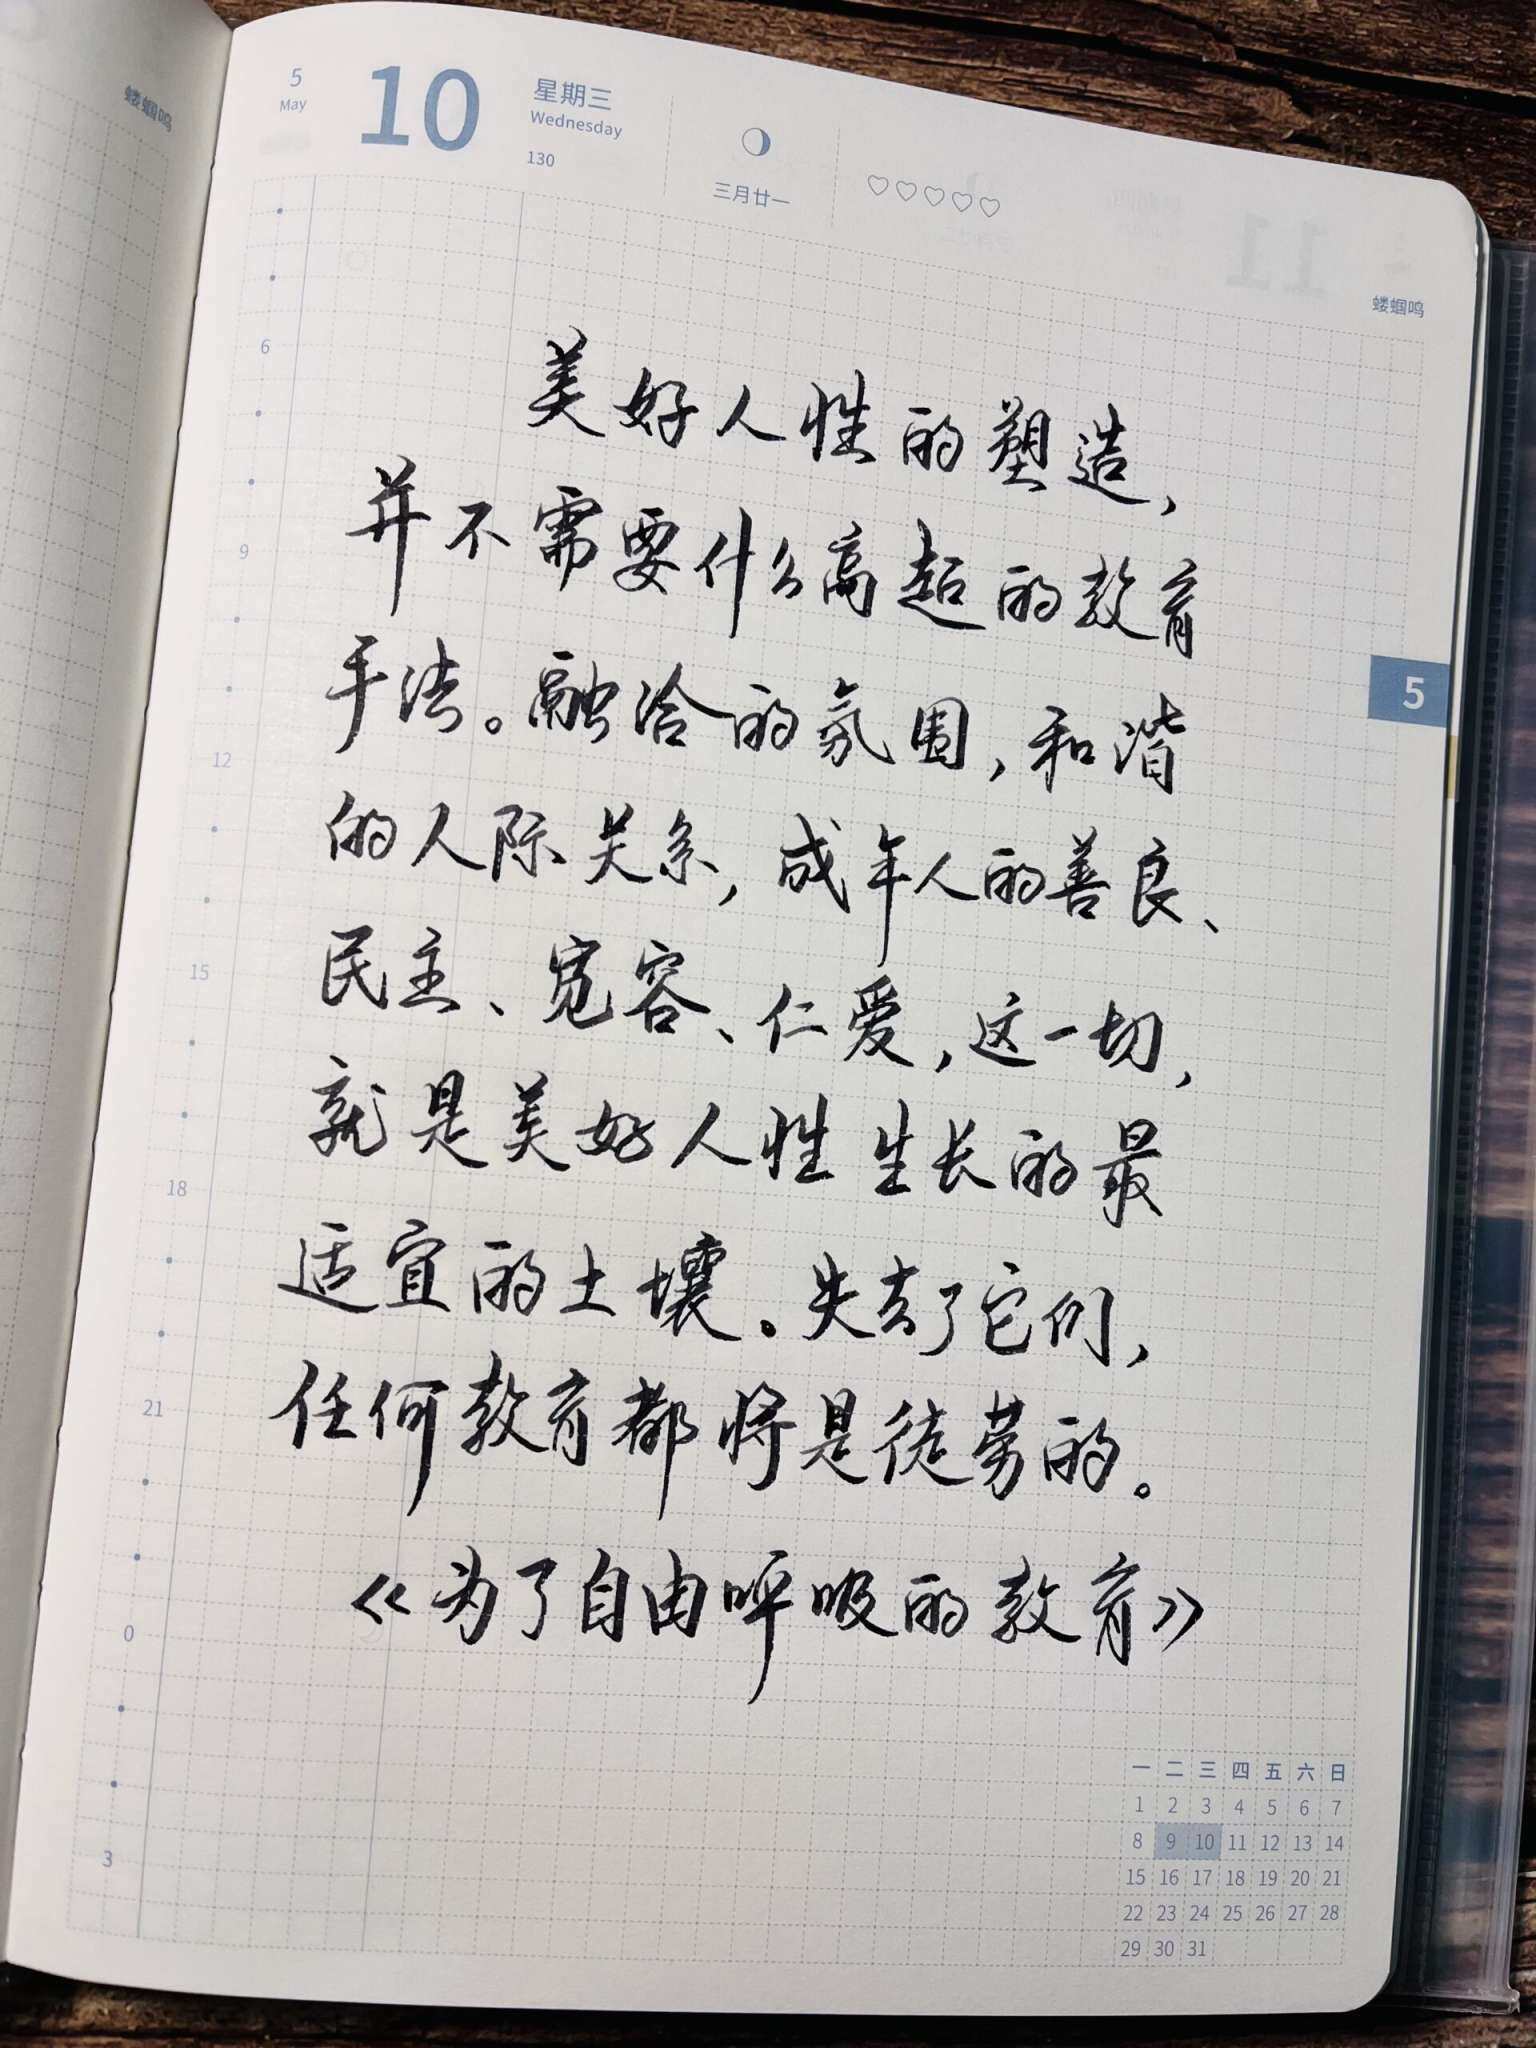 蝼蝈鸣
5
May
10
星期三
Wednesday
130
三月廿一
11
蝼蝈鸣
6
9
12
15
18
21
0
3
5
美好人性的塑造,
并不需要什么高超的教育
手法。融洽的氛围,和谐
的人际关系,成年人的善良、
民主、宽容、仁爱,这一切,
就是美好人性生长的最
适宜的土壤。失去了它们,
任何教育都将是徒劳的。
《为了自由呼吸的教育》
一 二 三 四 五 六 日
1 2 3 4 5 6 7
8 9 10 11 12 13 14
15 16 17 18 19 20 21
22 23 24 25 26 27 28
29 30 31